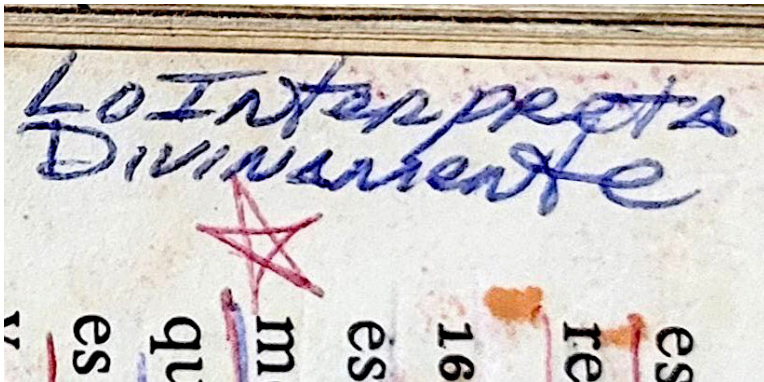 Lo Interpreta
Divinamente
es
qu
es
16
re
es